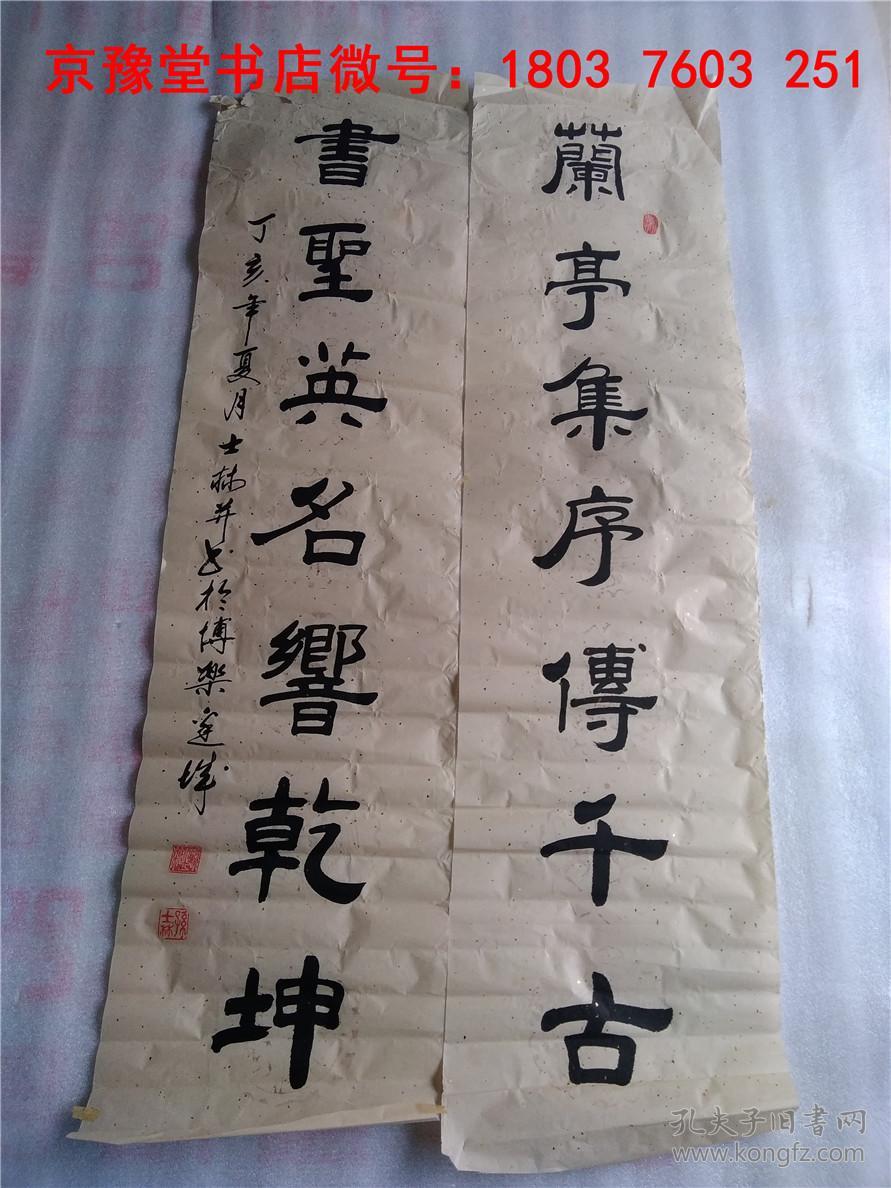 京豫堂书店微号：1803 7603 251
蘭亭集序傳千古
書聖英名響乾坤
丁亥年夏月士林并书於博樂边城
孫士林
孔夫子旧书网
www.kongfz.com